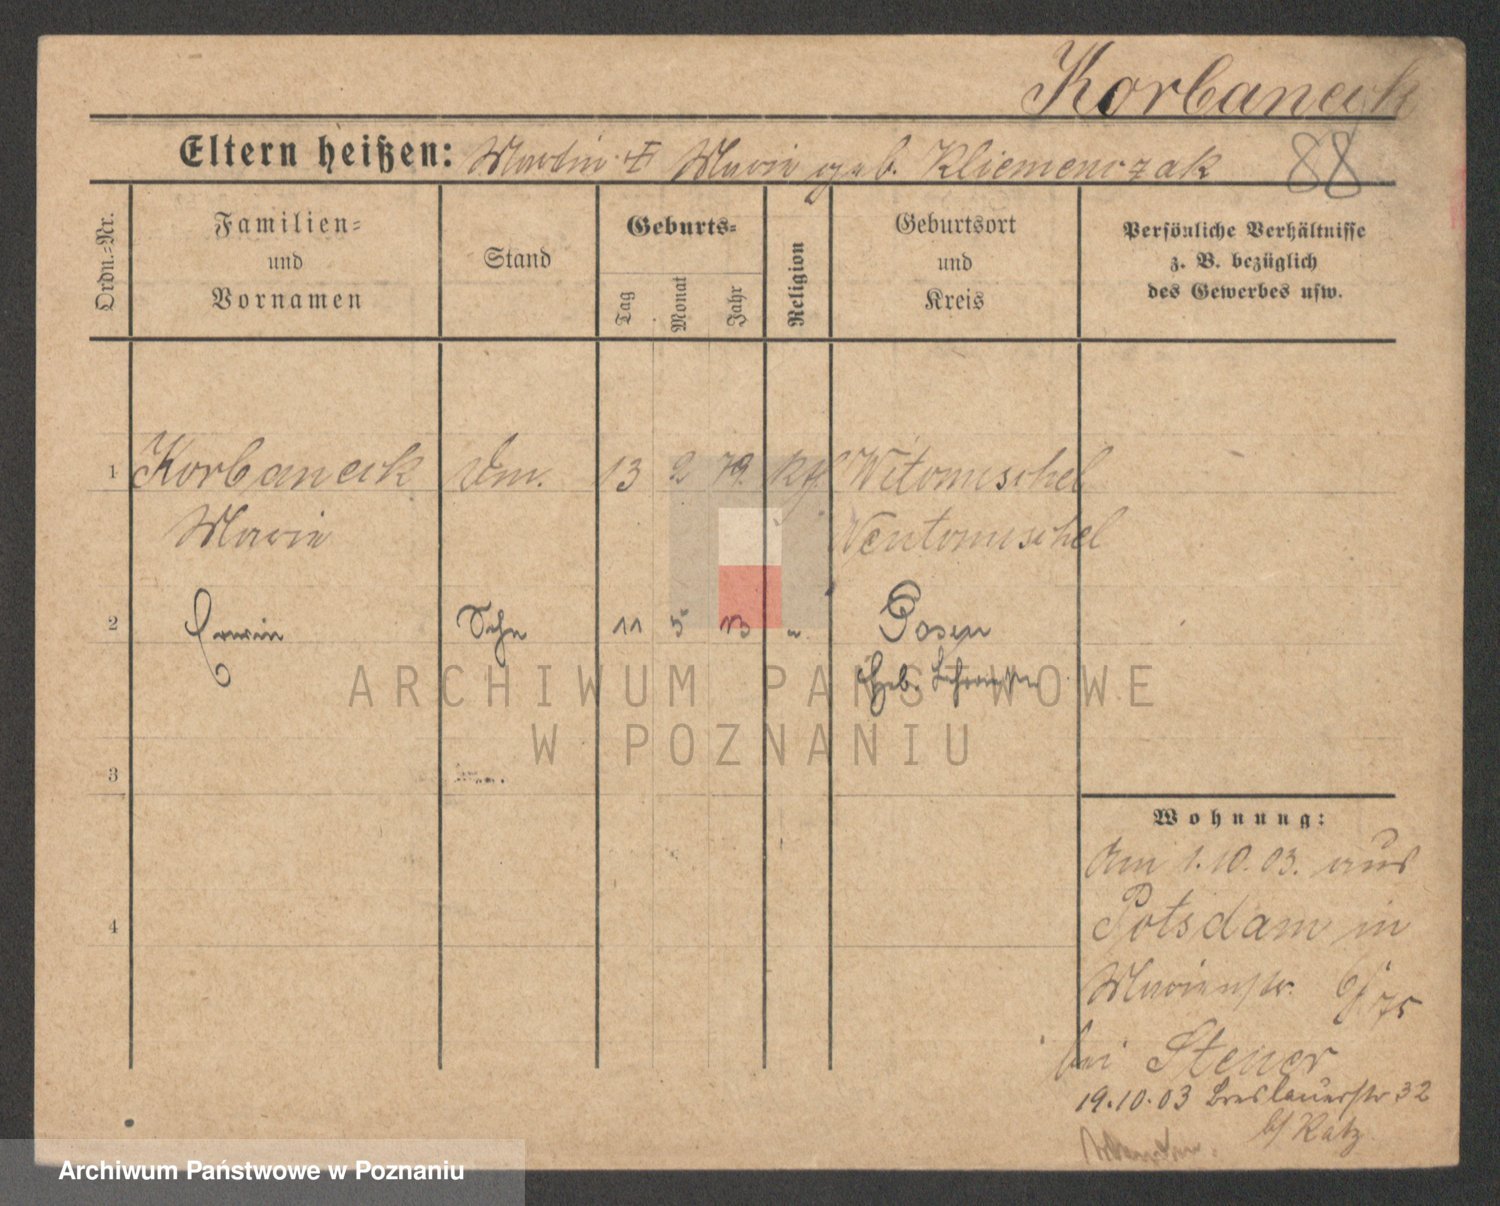 Korbaneck
88
Eltern heißen: Martin & Marie geb. Kliemenczak
Ordn.-Nr.
Familien-
und
Vornamen
Stand
Geburts-
Tag
Monat
Jahr
Religion
Geburtsort
und
Kreis
Persönliche Verhältnisse
z. B. bezüglich
des Gewerbes usw.
1 Korbaneck 13 2 79. Witomischel
Marie Neutomischel
2 Erwin Sohn 11 5 13 " Posen
Geb.
3
4
Wohnung:
Am 1.10.03. aus
Potsdam in
Marienstr. 75
bei Steuer
19.10.03 Breslauerstr 32
b/ Katz
ARCHIWUM PAŃSTWOWE
W POZNANIU
Archiwum Państwowe w Poznaniu